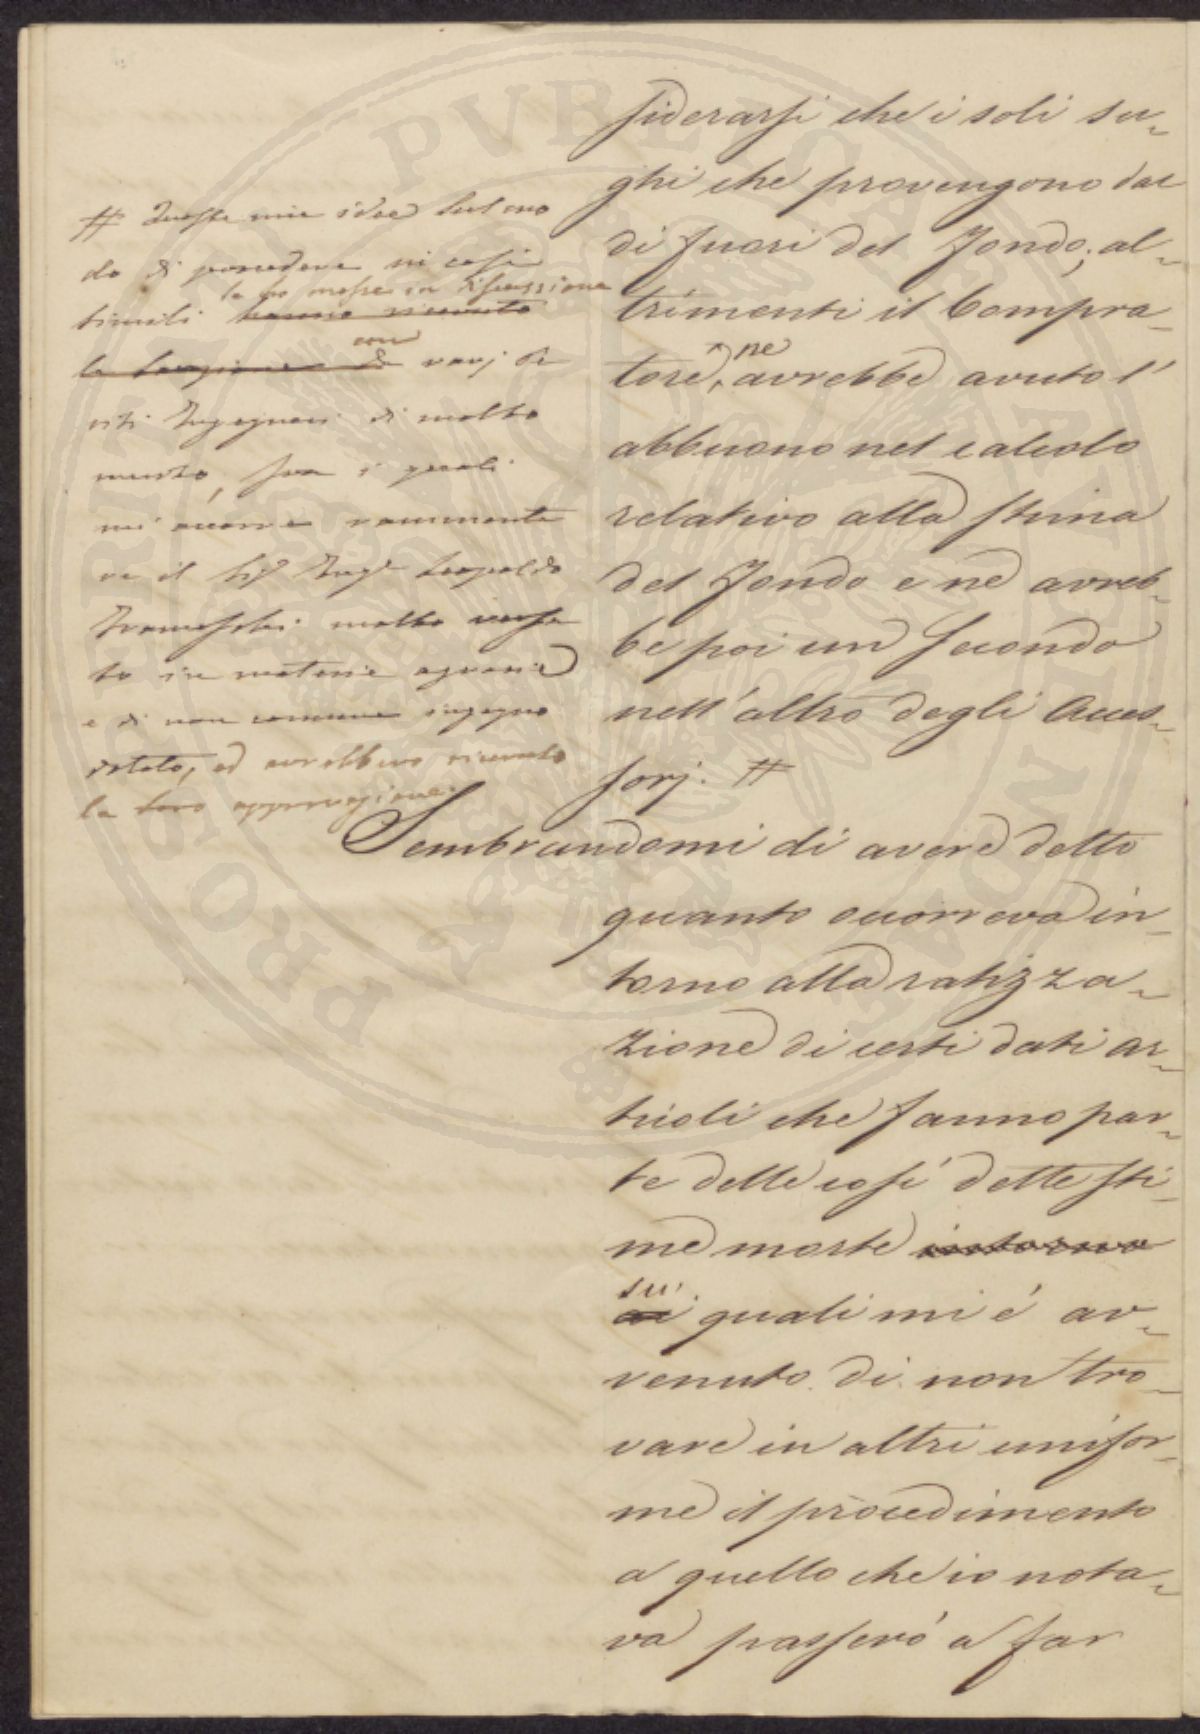 siderarsi che i soli su-
ghi che provengono dal
di fuori del Fondo; al-
trimenti il Compra-
tore, ne avrebbe avuto l'
abbuono nel calcolo
relativo alla stima
del Fondo e ne avreb-
be poi un secondo
nell'altro degli Acces-
sorj. #
# Queste mie idee sul mo
do di procedere in casi
simili hanno ricevuto
la ho messe in discussione
la sanzione di
con varj Pe
riti Ingegneri di molto
merito, fra i quali
mi occorre rammenta
re il Sig.r Ing.e Leopoldo
Franceschi molto versa
to in materie agrarie
e di non comune ingegno
dotato, ed avrebbero ricevuto
la loro approvazione.
Sembrandomi di avere detto
quanto occorreva in-
torno alla ratizza-
zione di certi dati ar-
ticoli che fanno par-
te delle così dette sti-
me morte intorno
ai
sui quali mi è av-
venuto di non tro-
vare in altri unifor-
me il procedimento
a quello che io nota-
va passerò a far